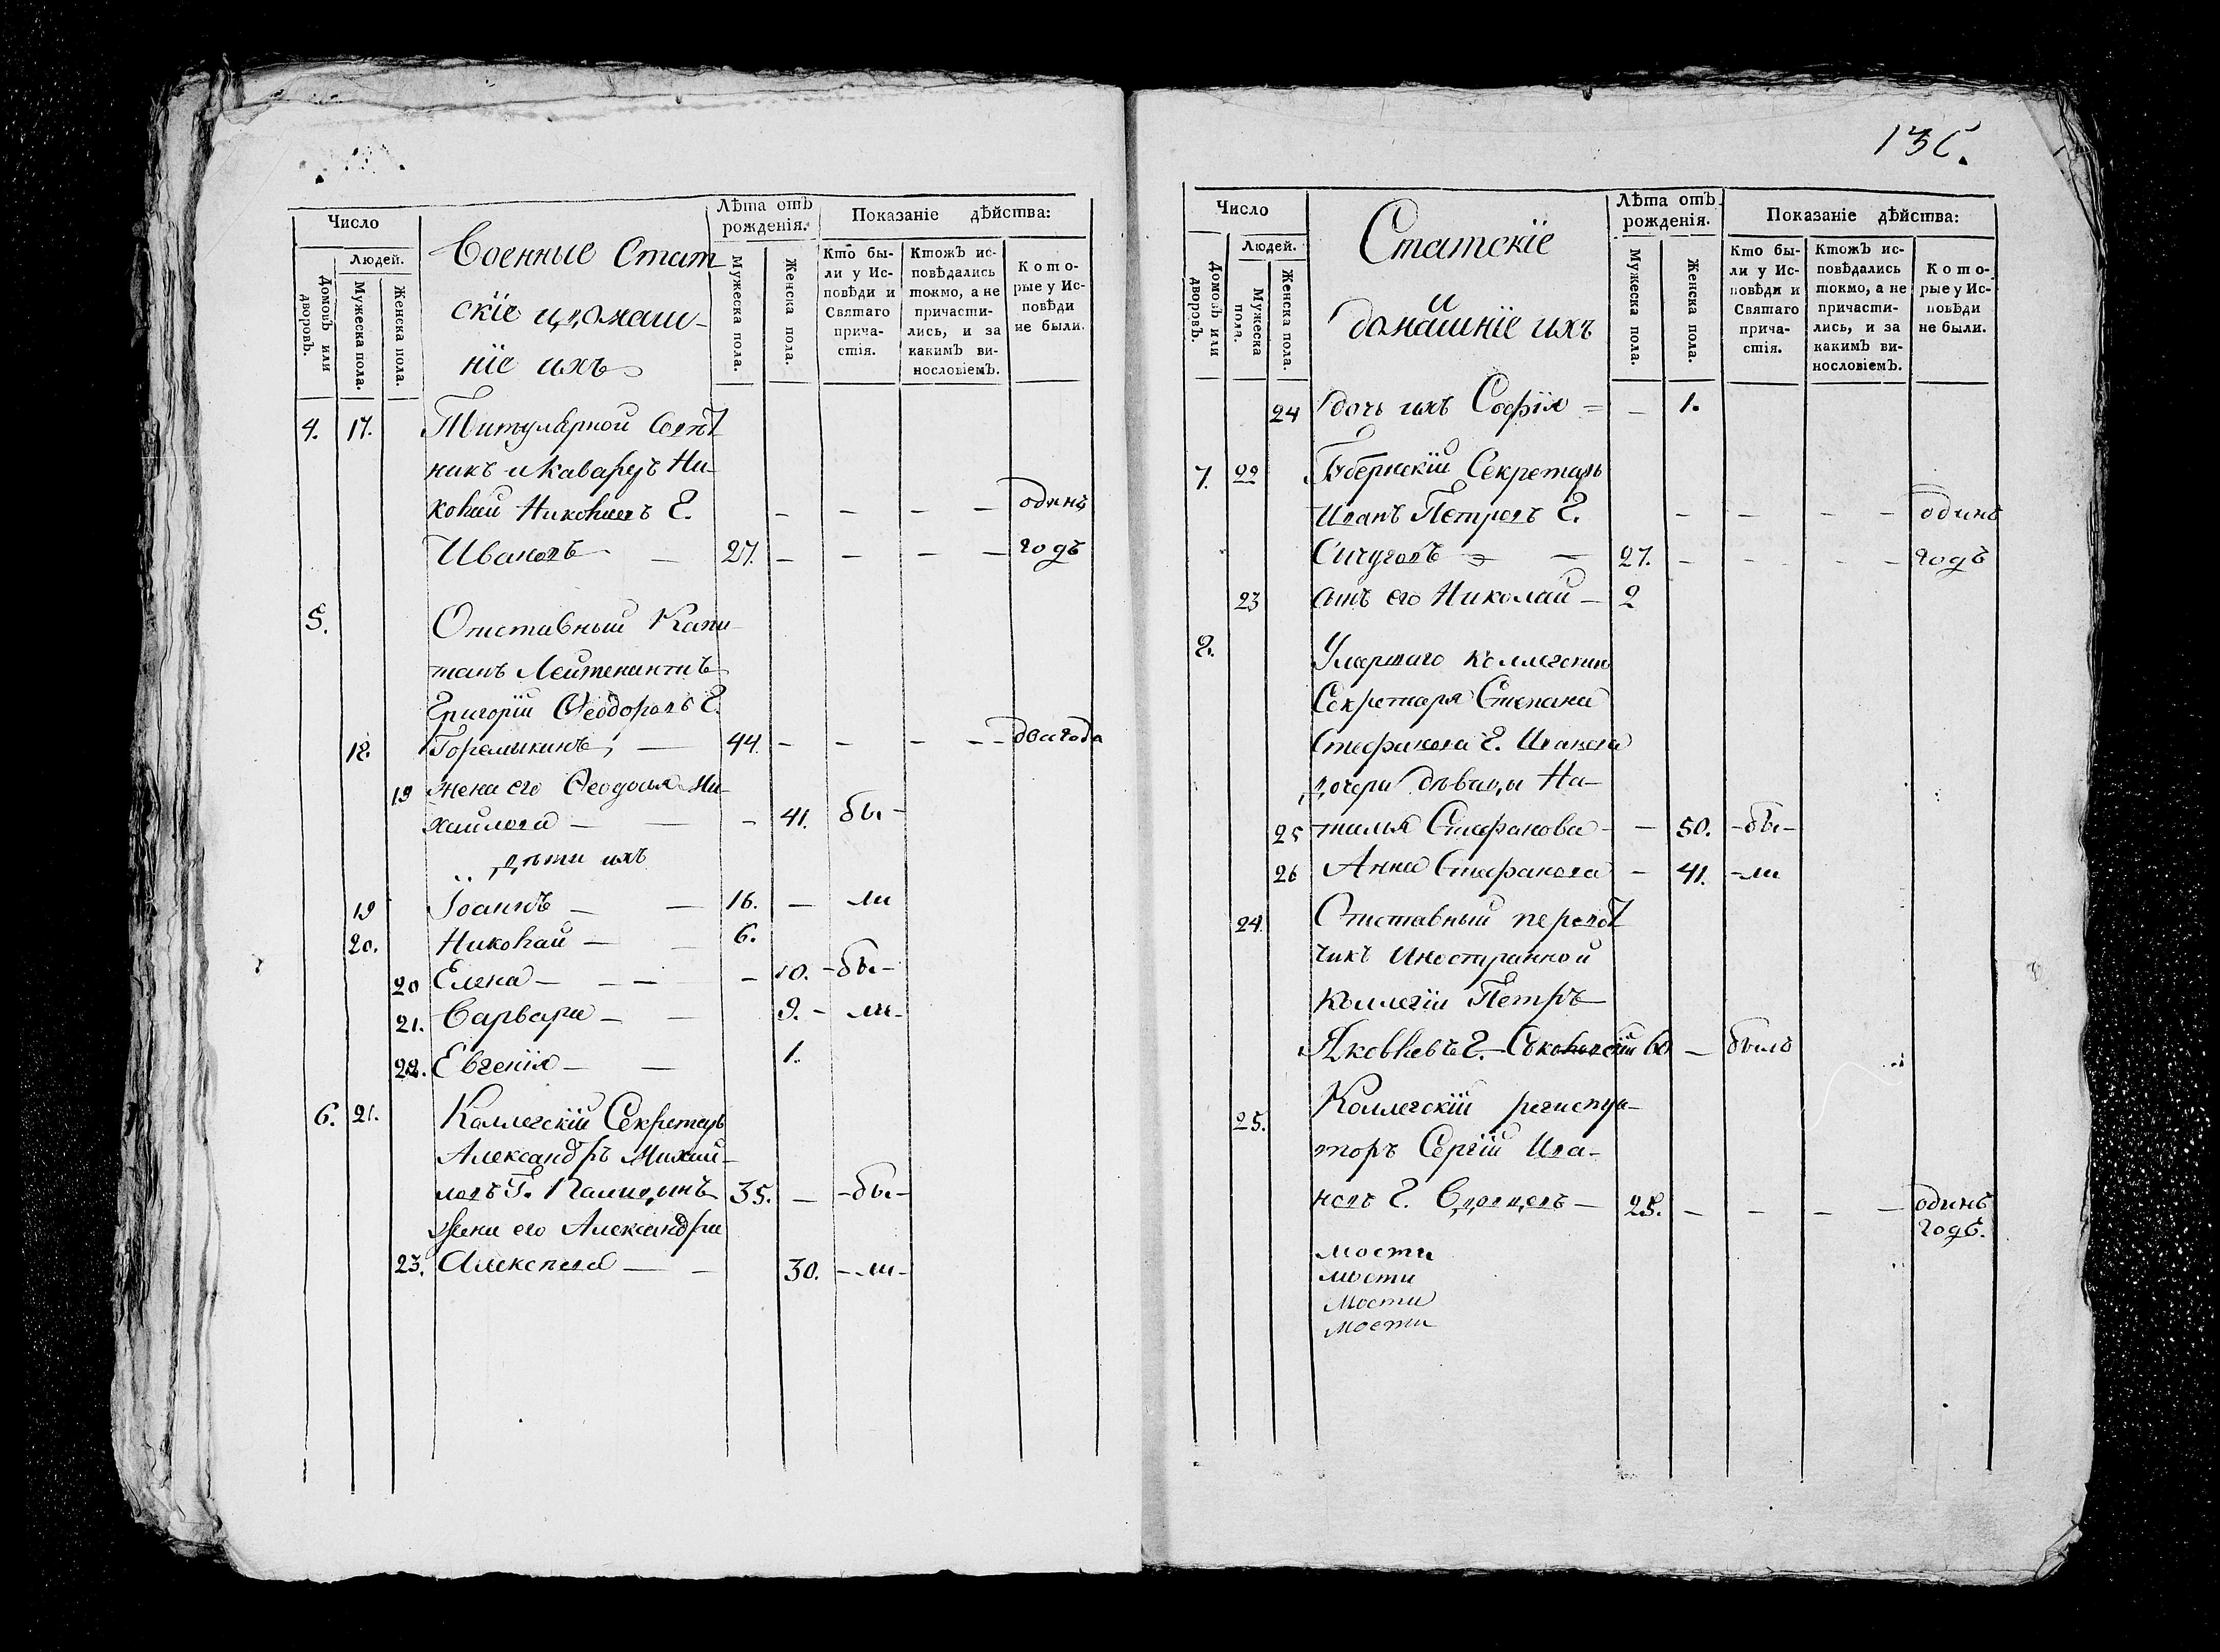 Число
Людей.
Домовъ или дворовъ.
Мужеска пола.
Женска пола.
Военные Стат
скіе идомаш-
ніе ихъ
Лѣта отъ рожденія.
Мужеска пола.
Женска пола.
Показаніе дѣйства:
Кто бы-
ли у Ис-
повѣди и
Святаго
прича-
стія.
Ктожъ ис-
повѣдались
токмо, а не
причасти-
лись, и за
какимъ ви-
нословіемъ.
Кото-
рые у Ис-
повѣди
не были.
4. 17. Титулярной Совѣт
никъ и Кавалеръ Ни-
колай Николаевъ Г. — — — — одинъ
Ивановъ — 27. — — — — годъ
5. Отставный Капи-
танъ Лейтенантъ
Григорій Ѳеодоровъ Г.
18. Горемыкинъ, — 44. — — — — два года
19 жена его Ѳеодосья Ми-
хайлова — — — 41. бы-
дѣти ихъ
19 Іоаннъ — — 16. — ли
20. Николай — — 6.
20 Елена — — — — 10. — бы-
21. Варвара — — 9. — ли-
22. Евгенія — — 1.
6. 21. Коллегскій Секретарь
Александръ Михай-
ловъ Г. 35. — — бы-
Жена его Александра
23. — — 30. — ли-
136.
Число
Людей.
Домовъ или дворовъ.
Мужеска пола.
Женска пола.
Статскіе
и
домашніе ихъ
Лѣта отъ рожденія.
Мужеска пола.
Женска пола.
Показаніе дѣйства:
Кто бы-
ли у Ис-
повѣди и
Святаго
прича-
стія.
Ктожъ ис-
повѣдались
токмо, а не
причасти-
лись, и за
какимъ ви-
нословіемъ.
Кото-
рые у Ис-
повѣди
не были.
24 дочь ихъ Софія = — 1.
7. 22 Губернскій Секретарь
Иванъ Петровъ Г. — — — — одинъ
Сичуговъ — 27. — — — — годъ
23 сынъ его Николай — 2
8. Умершаго Коллегскаго
Секретаря Степана
Стефанова Г. Иванова
дочери дѣвицы На-
25 талья Стефанова — — 50. — бы —
26 Анна Стефанова — 41. — ли
24. Отставный перевод
чикъ Иностранной
Коллегіи Петръ
Яковлевъ Г. — Соколовскій 60 — былъ
25. Коллегскій регистра-
торъ Сергій Ива-
новъ Г. — 28. — — — — одинъ
годъ.
мости
мости
мости
мости